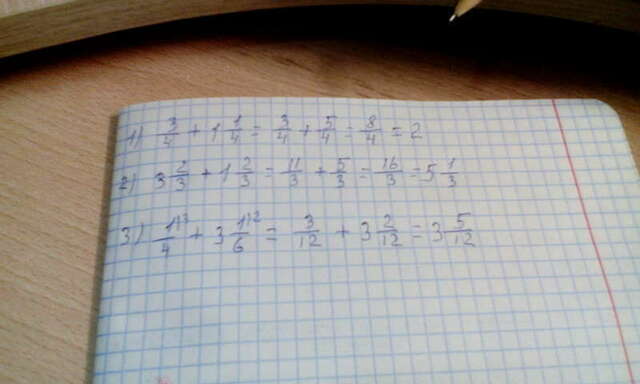 1) 3/4 + 1 1/4 = 3/4 + 5/4 = 8/4 = 2
2) 3 2/3 + 1 2/3 = 11/3 + 5/3 = 16/3 = 5 1/3
3) 1^{\3}/4 + 3 1^{\2}/6 = 3/12 + 3 2/12 = 3 5/12